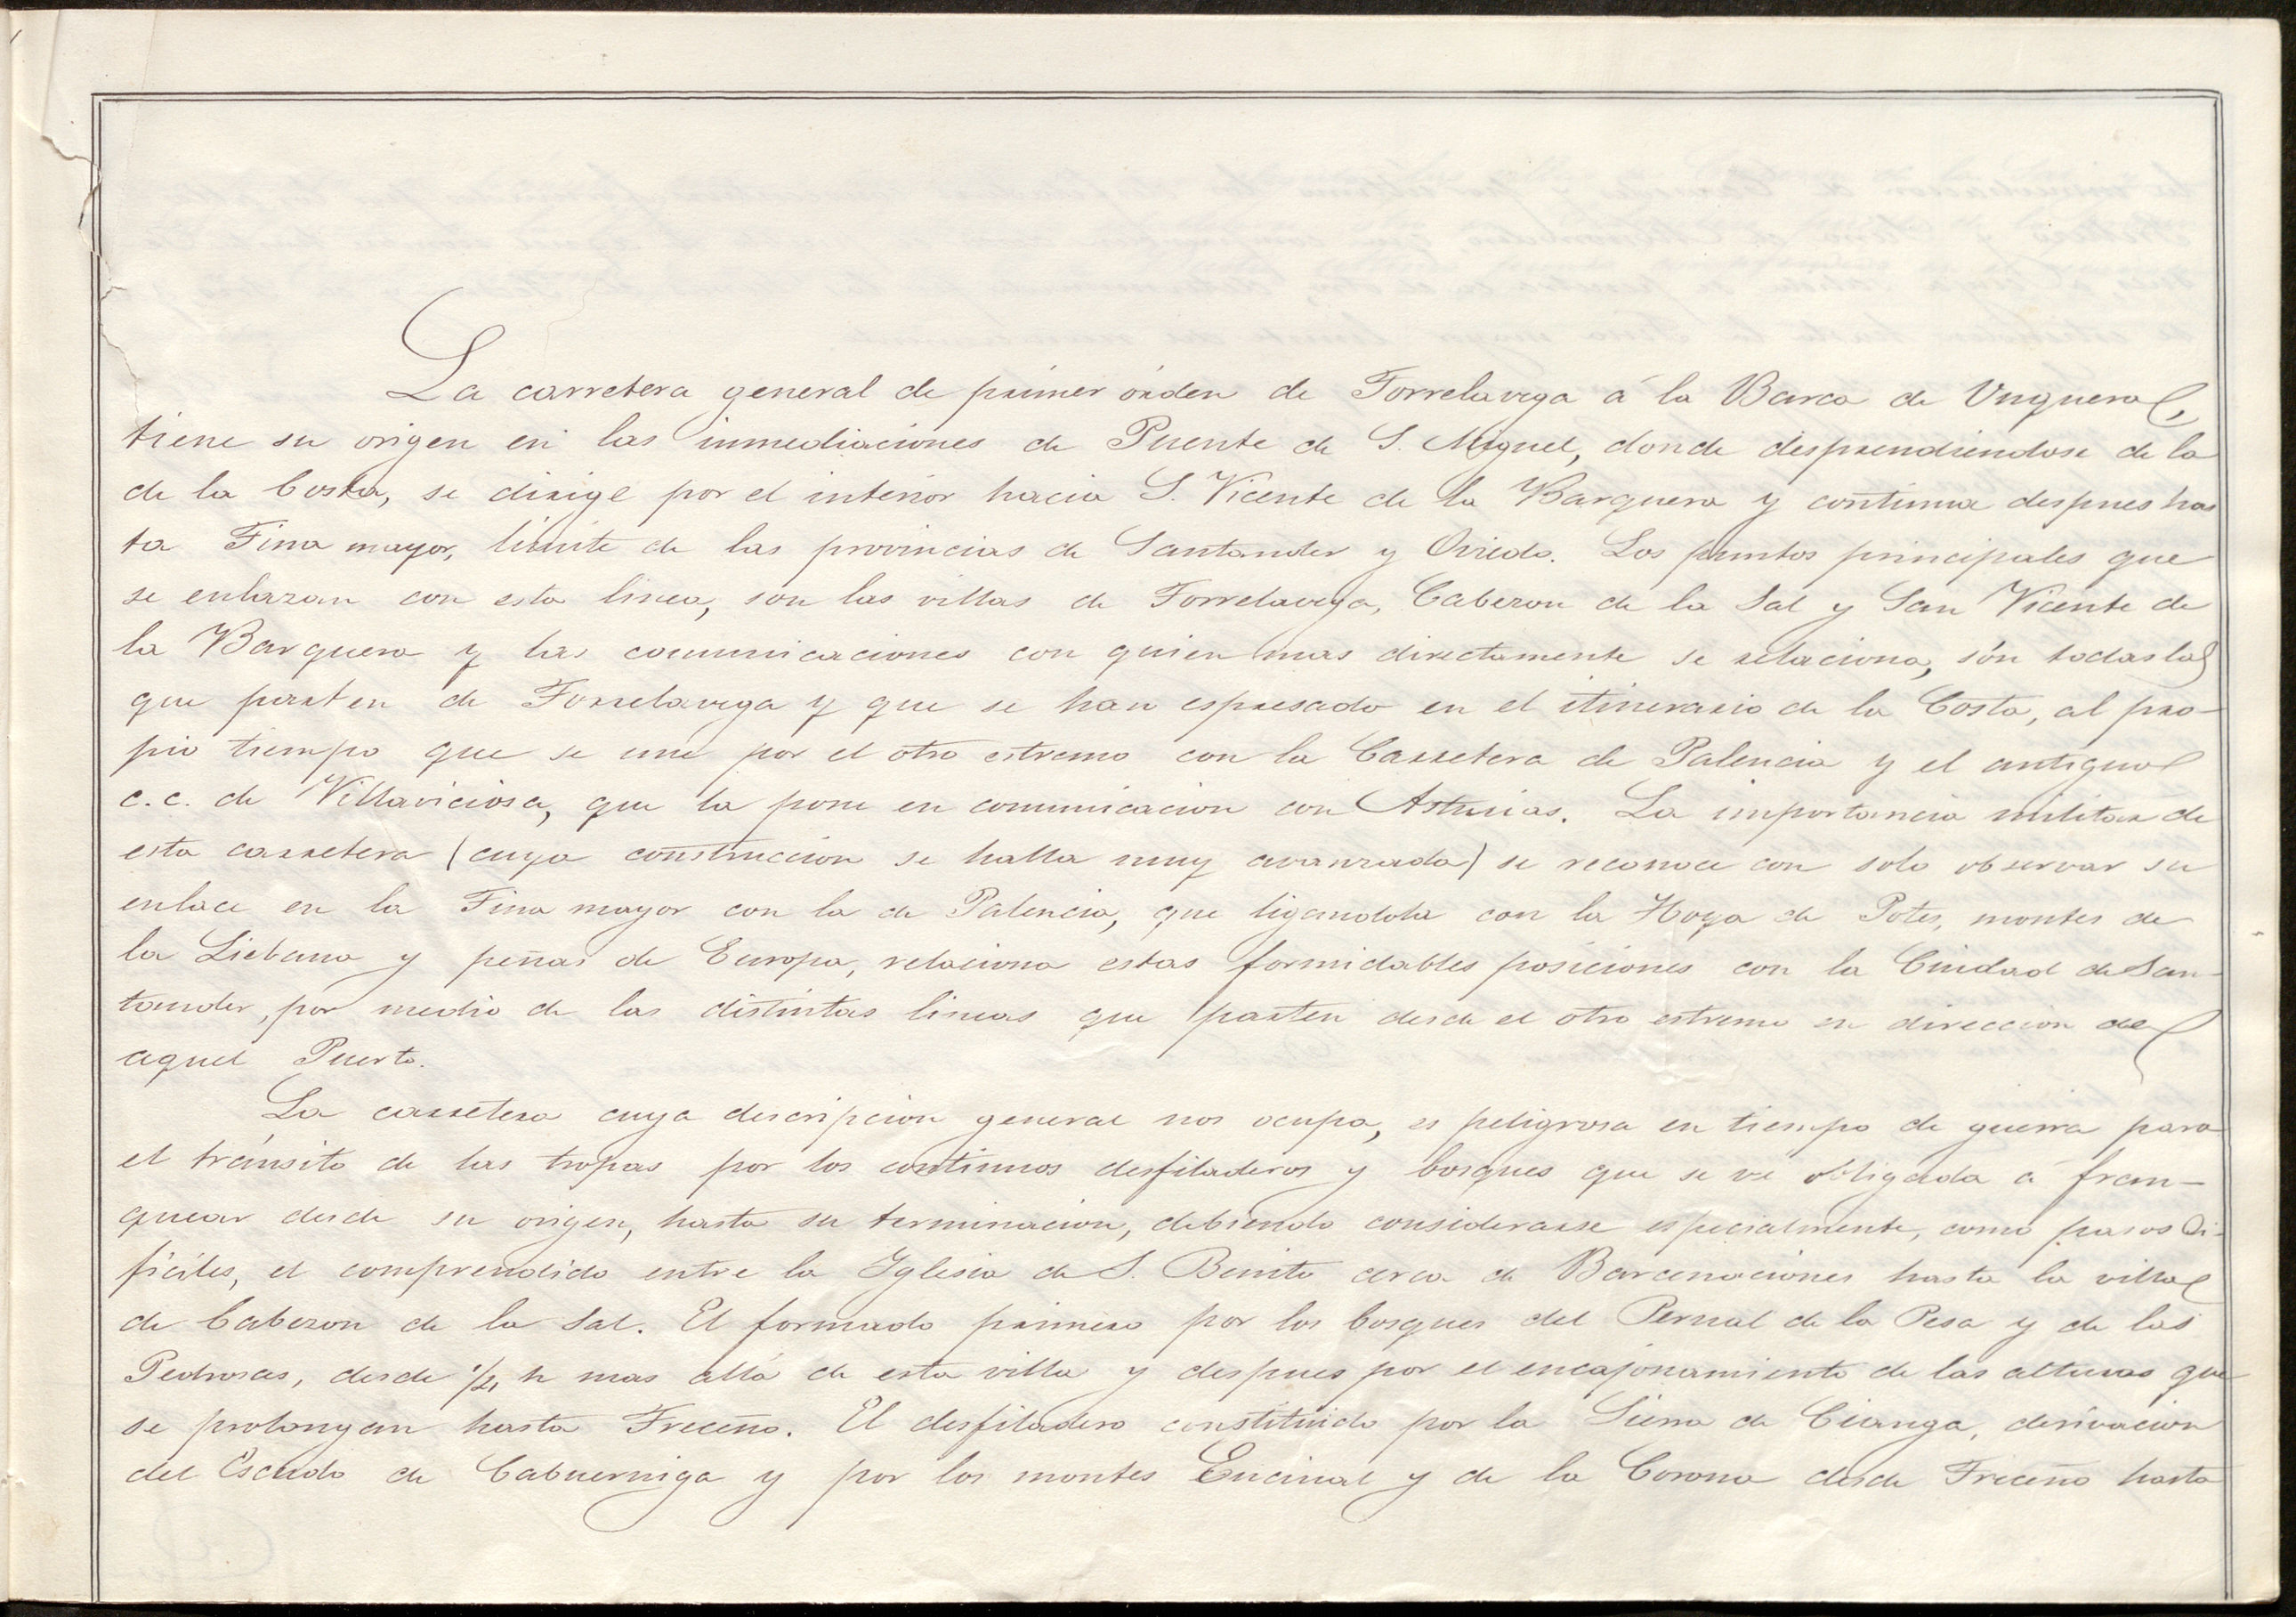 La carretera general de primer órden de Torrelavega á la Barca de Unquera,
tiene su origen en las inmediaciones de Puente de S. Miguel, donde desprendiendose de la
de la Costa, se dirige por el interior hacia S. Vicente de la Barquera y continua despues has
ta Tina mayor, limite de las provincias de Santander y Oviedo. Los puntos principales que
se enlazan con esta linea, son las villas de Torrelavega, Cabezon de la Sal y San Vicente de
la Barquera y las comunicaciones con quien mas directamente se relaciona, són todas las
que parten de Torrelavega y que se han espresado en el itinerario de la Costa, al pro-
pio tiempo que se une por el otro estremo con la Carretera de Palencia y el antiguo
c.c. de Villaviciosa, que la pone en comunicacion con Asturias. La importancia militar de
esta carretera (cuya construccion se halla muy avanzada) se reconoce con solo observar su
enlace en la Tina mayor con la de Palencia, que ligandola con la Hoya de Potes, montes de
la Liebana y peñas de Europa, relaciona estas formidables posiciones con la Ciudad de San-
tander, por medio de las distintas lineas que parten desde el otro estremo en direccion de
aquel Puerto.
La carretera cuya descripcion general nos ocupa, es peligrosa en tiempo de guerra para
el tránsito de las tropas por los continuos desfiladeros y bosques que se vé obligada á fran-
quear desde su origen, hasta su terminacion, debiendo considerarse especialmente, como pasos di-
ficiles, el comprendido entre la Iglesia de S. Benito cerca de Barcenaciones hasta la villa
de Cabezon de la Sal. El formado primero por los bosques del Pernal de la Pesa y de las
Pedrosas, desde 1/2 h mas allá de esta villa y despues por el encajonamiento de las alturas que
se prolongan hasta Treceño. El desfiladero constituido por la Sierra de Cianga, derivacion
del Escudo de Cabuerniga y por los montes Encinal y de la Corona desde Treceño hasta